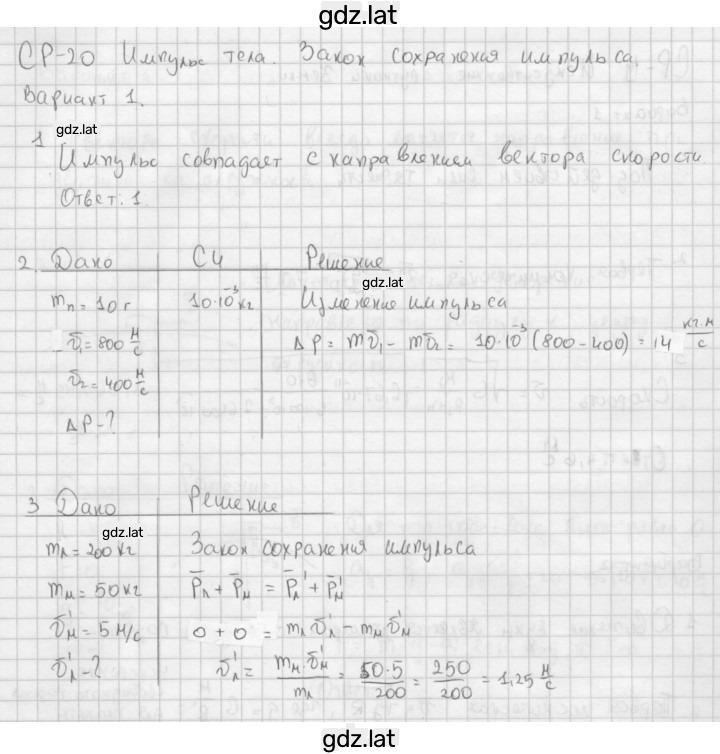 gdz.lat
СР-20 Импульс тела. Закон сохранения импульса.
Вариант 1.
1 gdz.lat
Импульс совпадает с направлением вектора скорости
Ответ: 1.
2. Дано СИ Решение
gdz.lat
mп = 10 г 10·10⁻³ кг Изменение импульса
v̄₁ = 800 м/с ΔP = mv̄₁ - mv̄₂ = 10·10⁻³ (800 - 400) = 14 кг·м/с
v̄₂ = 400 м/с
ΔP - ?
3 Дано Решение
gdz.lat
mл = 200 кг Закон сохранения импульса
mм = 50 кг P̄л + P̄м = P̄л' + P̄м'
v̄м' = 5 м/с 0 + 0 = mл v̄л' - mм v̄м'
v̄л' - ? v̄л' = mм v̄м' / mл = 50·5 / 200 = 250 / 200 = 1,25 м/с
gdz.lat